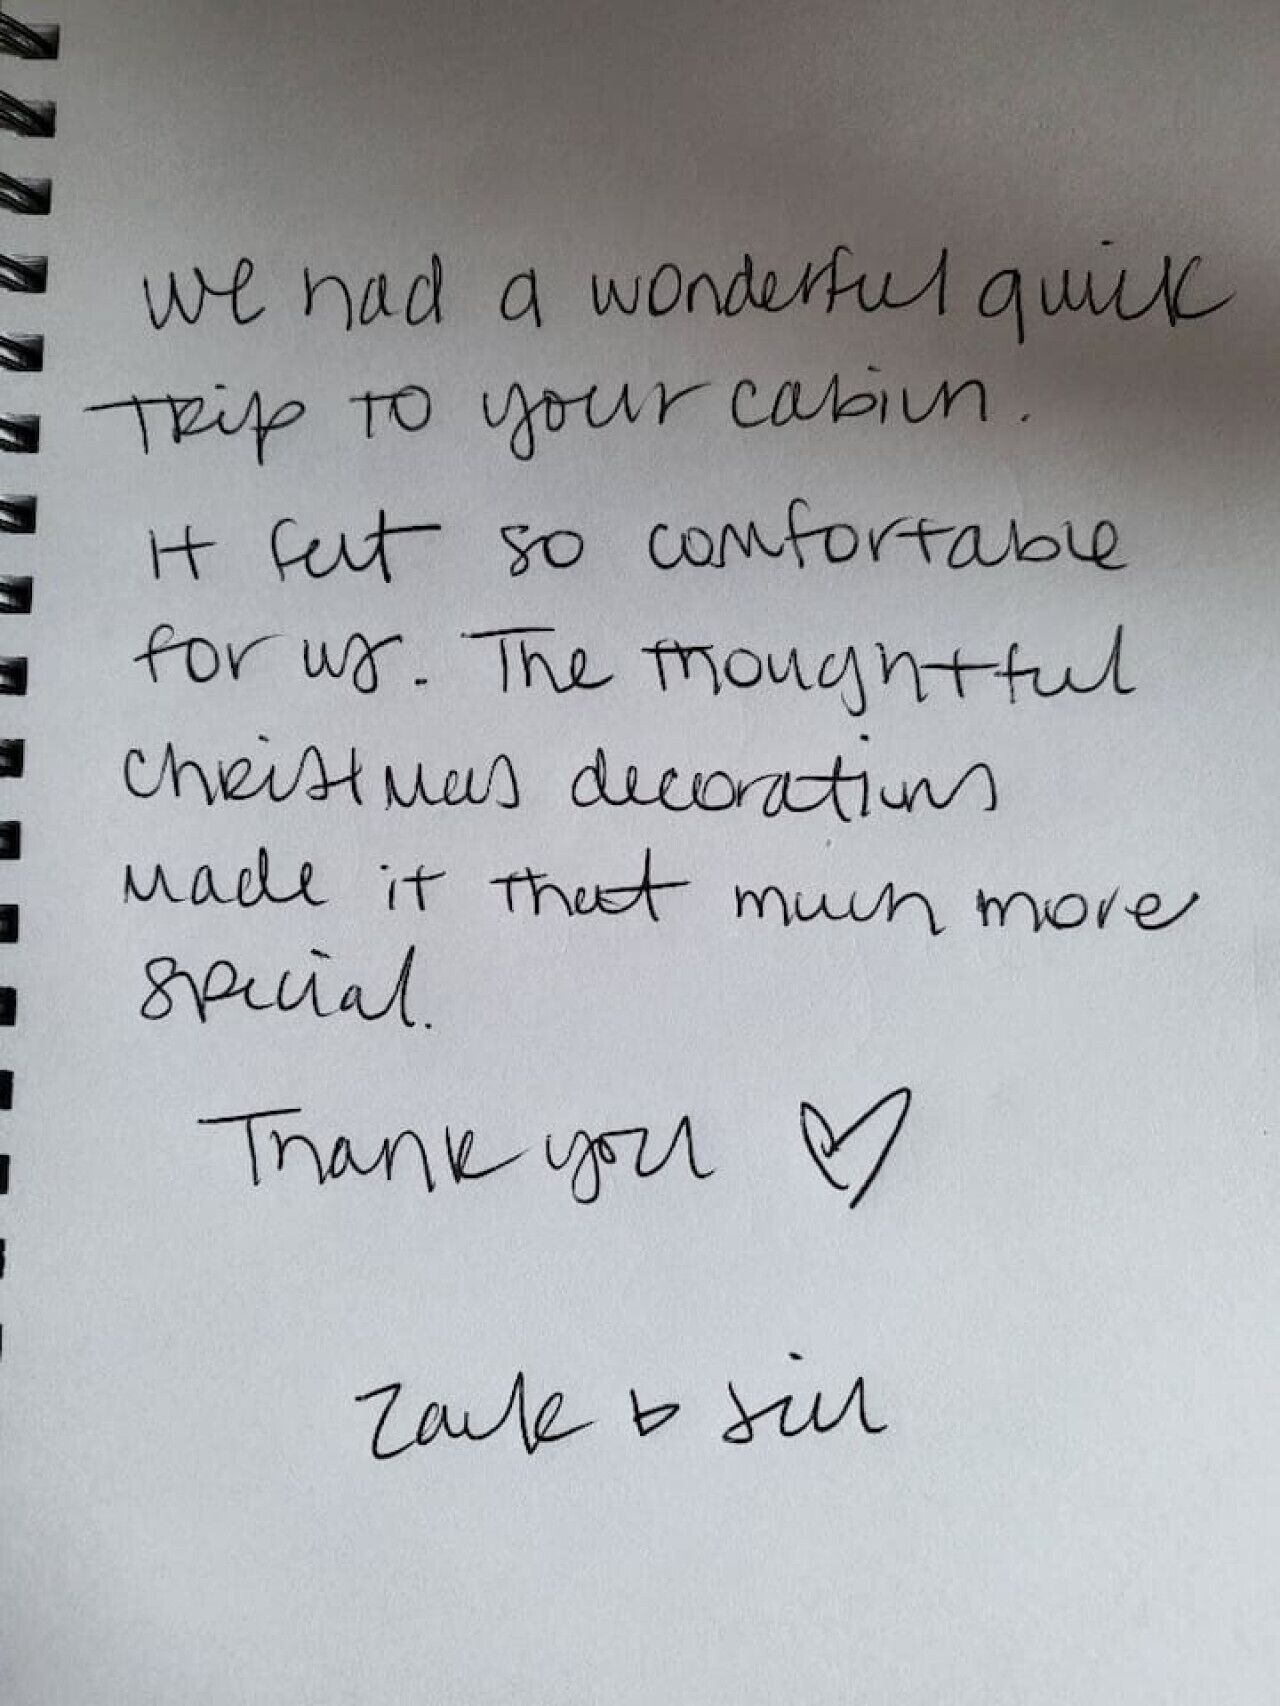 We had a wonderful quick
Trip to your cabin.
It felt so comfortable
for us. The thoughtful
Christmas decorations
made it that much more
special.
Thank you ♡
Zack & Jill